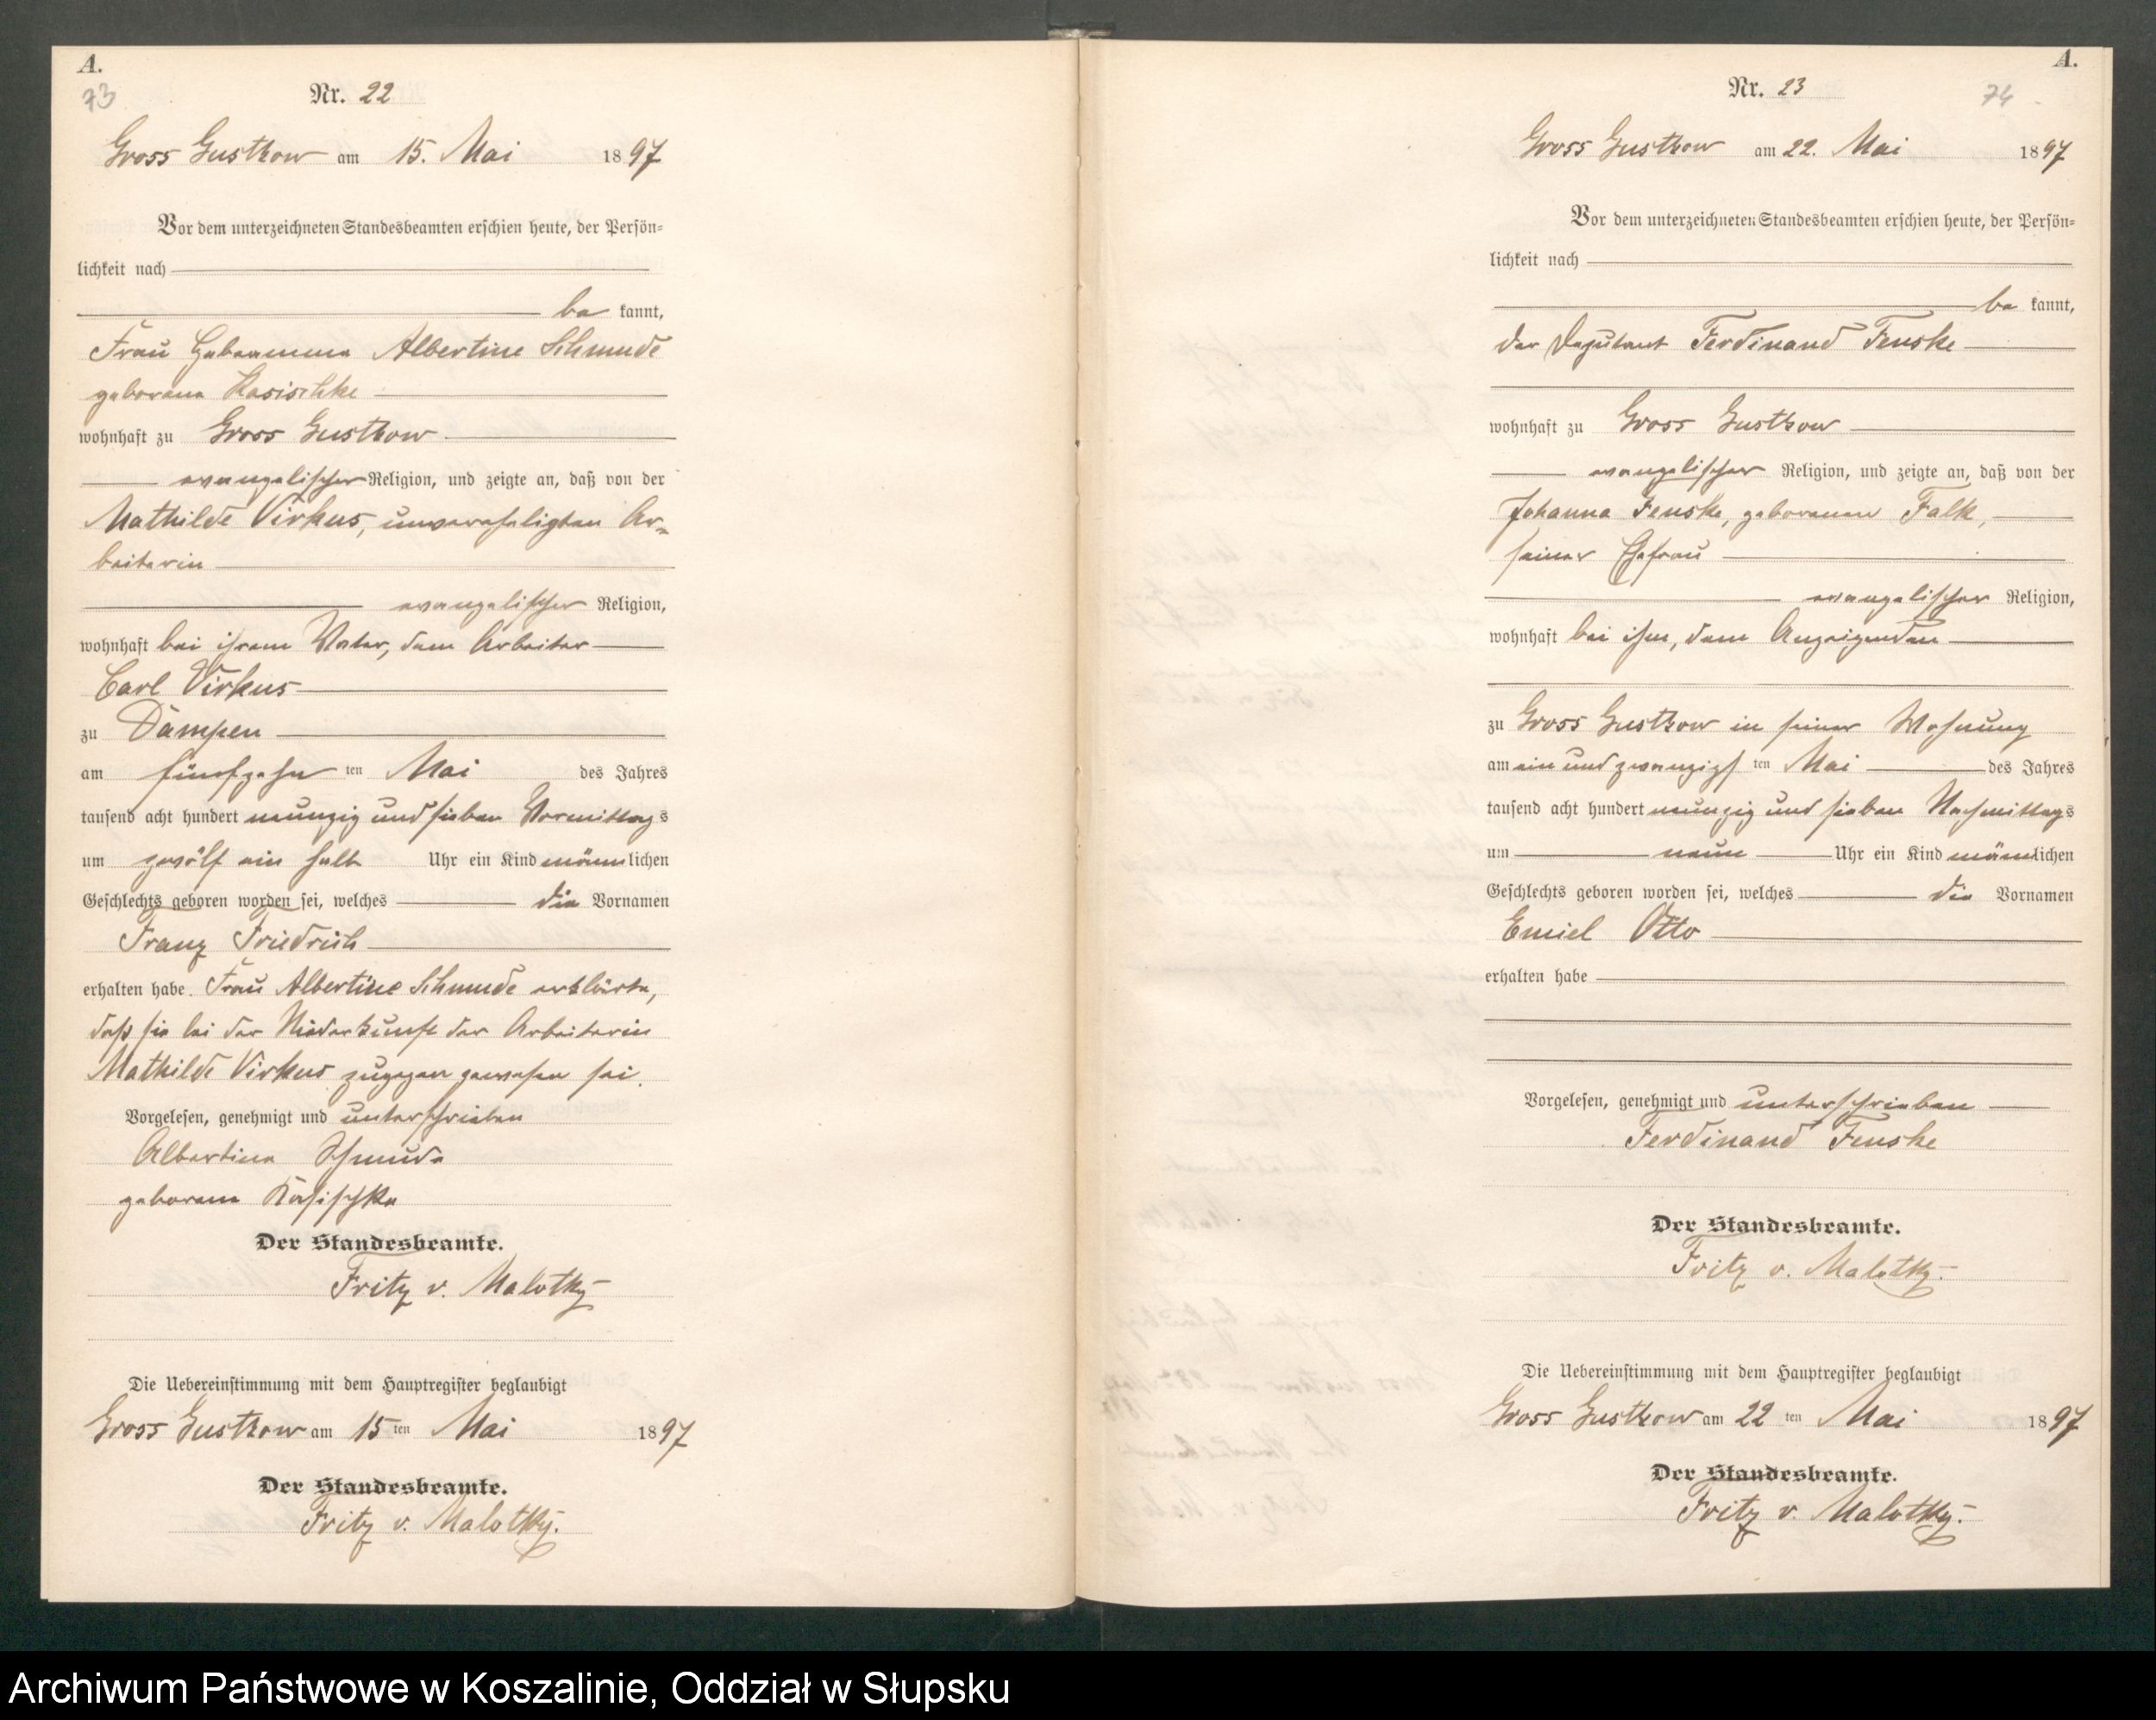 A.
73
Nr. 22
Gross Gustkow am 15. Mai 1897
Vor dem unterzeichneten Standesbeamten erschien heute, der Persön-
lichkeit nach
be kannt,
Frau Hebeamme Albertine Schmude
geborene Kasischke
wohnhaft zu Gross Gustkow
evangelischer Religion, und zeigte an, daß von der
Mathilde Virkus, unverehelichten Ar-
beiterin
evangelischer Religion,
wohnhaft bei ihrem Vater, dem Arbeiter
Carl Virkus
zu Dampen
am fünfzehn ten Mai des Jahres
tausend acht hundert neunzig und sieben Vormittags
um zwölf ein halb Uhr ein Kind männlichen
Geschlechts geboren worden sei, welches die Vornamen
Franz Friedrich
erhalten habe. Frau Albertine Schmude erklärte,
daß sie bei der Niederkunft der Arbeiterin
Mathilde Virkus zugegen gewesen sei.
Vorgelesen, genehmigt und unterschrieben
Albertine Schmude
geborene Kasischke
Der Standesbeamte.
Fritz v. Malotky
Die Uebereinstimmung mit dem Hauptregister beglaubigt
Gross Gustkow am 15 ten Mai 1897
Der Standesbeamte.
Fritz v. Malotky.
A.
74
Nr. 23
Gross Gustkow am 22. Mai 1897
Vor dem unterzeichneten Standesbeamten erschien heute, der Persön-
lichkeit nach
be kannt,
der Deputant Ferdinand Fenske
wohnhaft zu Gross Gustkow
evangelischer Religion, und zeigte an, daß von der
Johanna Fenske, geborenen Falk,
seiner Ehefrau
evangelischer Religion,
wohnhaft bei ihm, dem Anzeigenden
zu Gross Gustkow in seiner Wohnung
am ein und zwanzigs ten Mai des Jahres
tausend acht hundert neunzig und sieben Nachmittags
um neun Uhr ein Kind männlichen
Geschlechts geboren worden sei, welches die Vornamen
Emiel Otto
erhalten habe
Vorgelesen, genehmigt und unterschrieben
Ferdinand Fenske
Der Standesbeamte.
Fritz v. Malotky.
Die Uebereinstimmung mit dem Hauptregister beglaubigt
Gross Gustkow am 22 ten Mai 1897
Der Standesbeamte.
Fritz v. Malotky.
Archiwum Państwowe w Koszalinie, Oddział w Słupsku